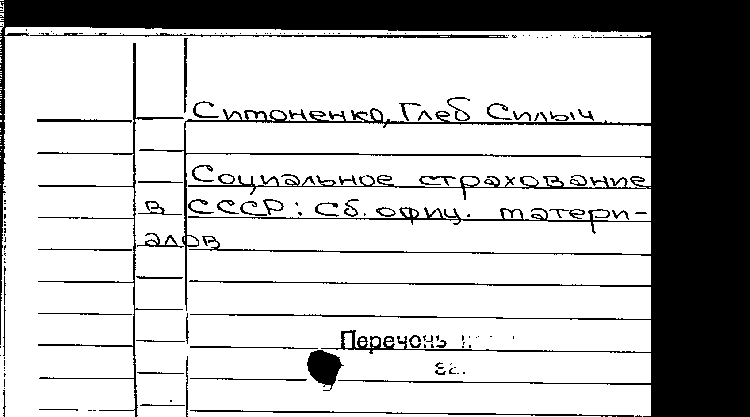 Ситоненко, Глеб Силыч
Социальное страхование
в СССР: Сб. офиц. матери-
алов
Перечень